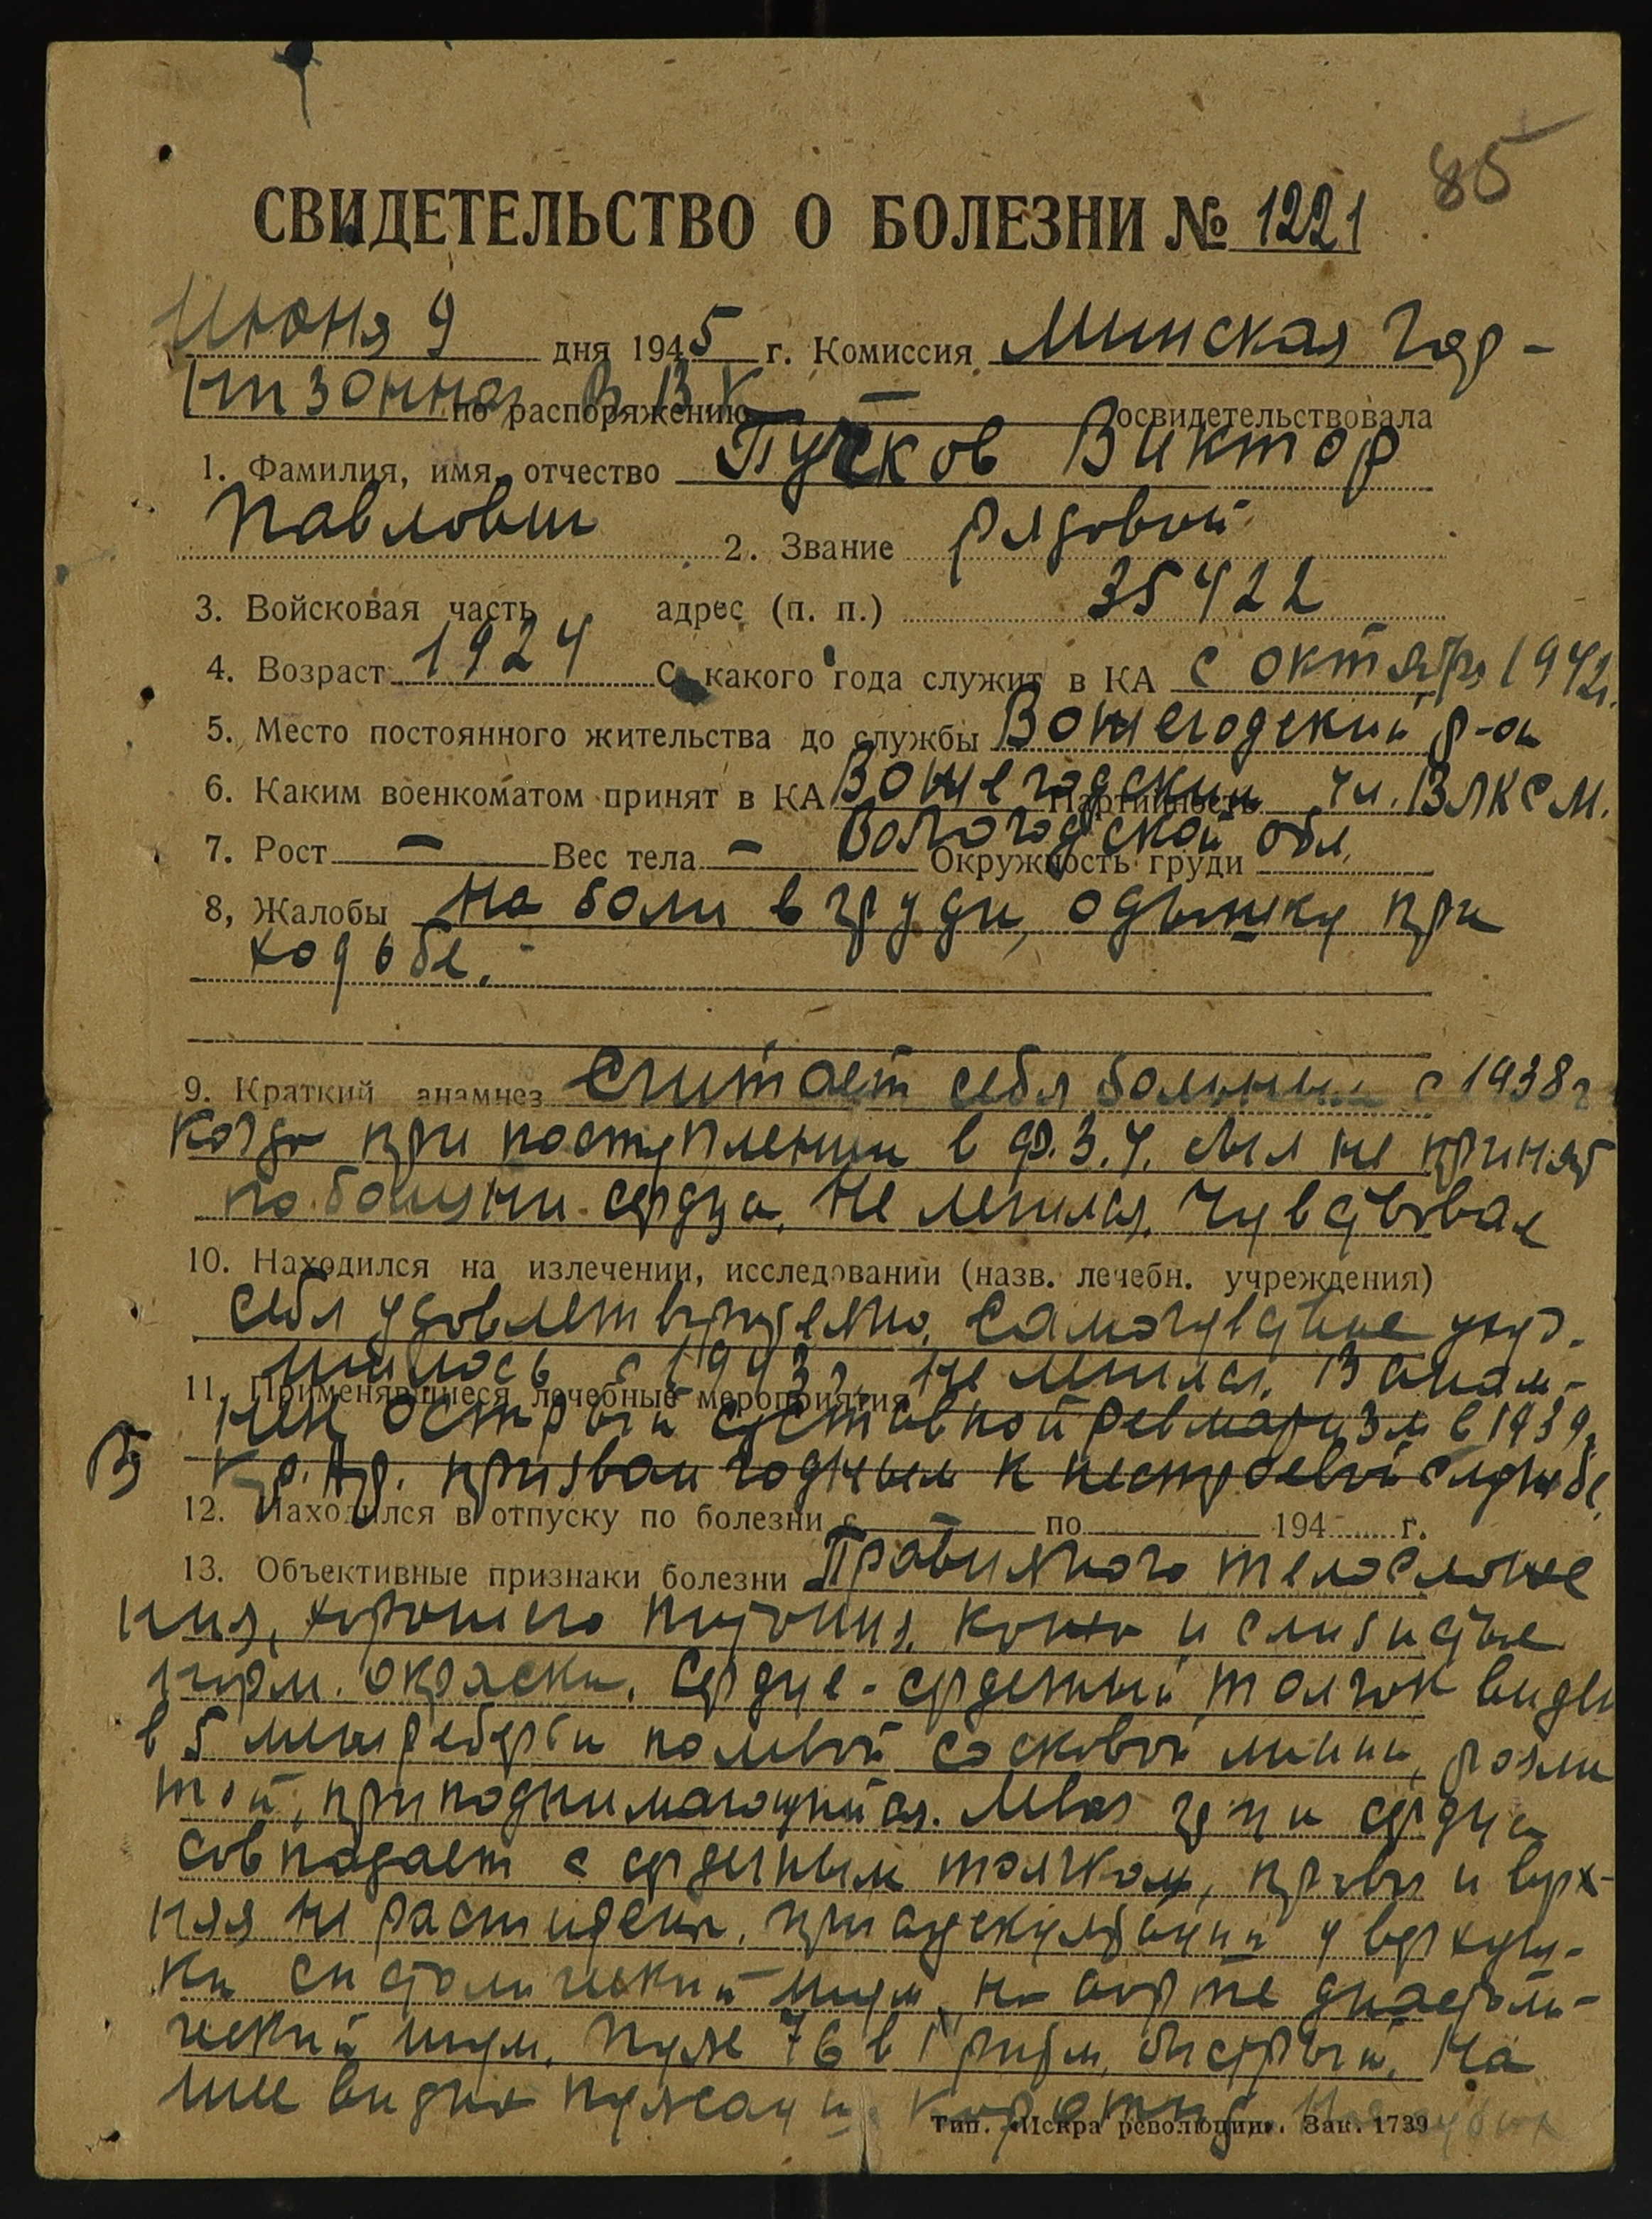 85
СВИДЕТЕЛЬСТВО О БОЛЕЗНИ № 1221
Июня 9 дня 1945 г. Комиссия Минская гар-
низонная ВВК по распоряжению — освидетельствовала
1. Фамилия, имя, отчество Пучков Виктор
Павлович 2. Звание рядовой
3. Войсковая часть адрес (п. п.) 35422
4. Возраст 1924 С какого года служит в КА с октября 1942г.
5. Место постоянного жительства до службы Вожегодский р-он
6. Каким военкоматом принят в КА Вожегодским Партийность чл. ВЛКСМ.
Вологодской обл.
7. Рост — Вес тела — Окружность груди
8, Жалобы На боли в груди, одышку при
ходьбе.
9. Краткий анамнез Считает себя больным с 1938г
когда при поступлении в Ф.З.У. был не принят
по болезни сердца. Не лечился. Чувствовал
10. Находился на излечении, исследовании (назв. лечебн. учреждения)
себя удовлетворительно. Самочувствие ухуд-
шилось с 1943г. Не лечился. В анам-
11. Применявшиеся лечебные мероприятия
незе острый суставной ревматизм в 1939г.
В Кр. Ар. призван годным к нестроевой службе.
12. Находился в отпуску по болезни с — по 194 г.
13. Объективные признаки болезни Правильного телосложе
ния, хорошего питания. Кожа и слизистые
норм. окраски. Сердце - сердечный толчок виден
в 5 межреберьи по левой сосковой линии, разли
той, приподнимающийся. Левая гр-ца сердца
совпадает с сердечным толчком, правая и верх-
няя не расширены. При аускультации у верхуш-
ки систолический шум, на аорте диастоли-
ческий шум. Пульс 76 в 1' ритм. быстрый. На
шее видна пульсация каротид.
Тип. «Искра революции». Зак. 1739